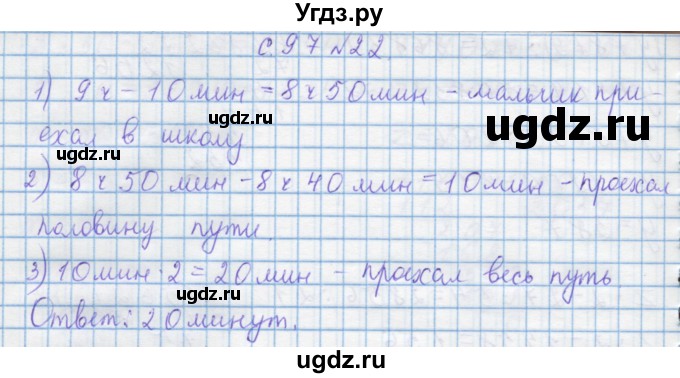 Угдз.ру
с. 97 №22
1) 9 ч – 10 мин = 8 ч 50 мин – мальчик при-
ехал в школу
2) 8 ч 50 мин – 8 ч 40 мин = 10 мин – проехал
половину пути.
3) 10 мин · 2 = 20 мин – проехал весь путь
Ответ: 20 минут.
ugdz.ru
ugdz.ru
ugdz.ru
ugdz.ru
ugdz.ru
ugdz.ru
ugdz.ru
ugdz.ru